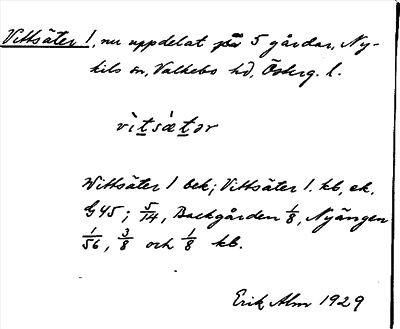 Vittsäter 1, nu uppdelat på 5 gårdar, Ny-
kils sn, Valkebo hd, Österg. l.
vìtsætər
Wittsäter 1 bek; Vittsäter 1. kb, ek.
G45; 5/14, Backgården 1/8, Nyängen
1/56, 3/8 och 1/8 kb.
Erik Alm 1929